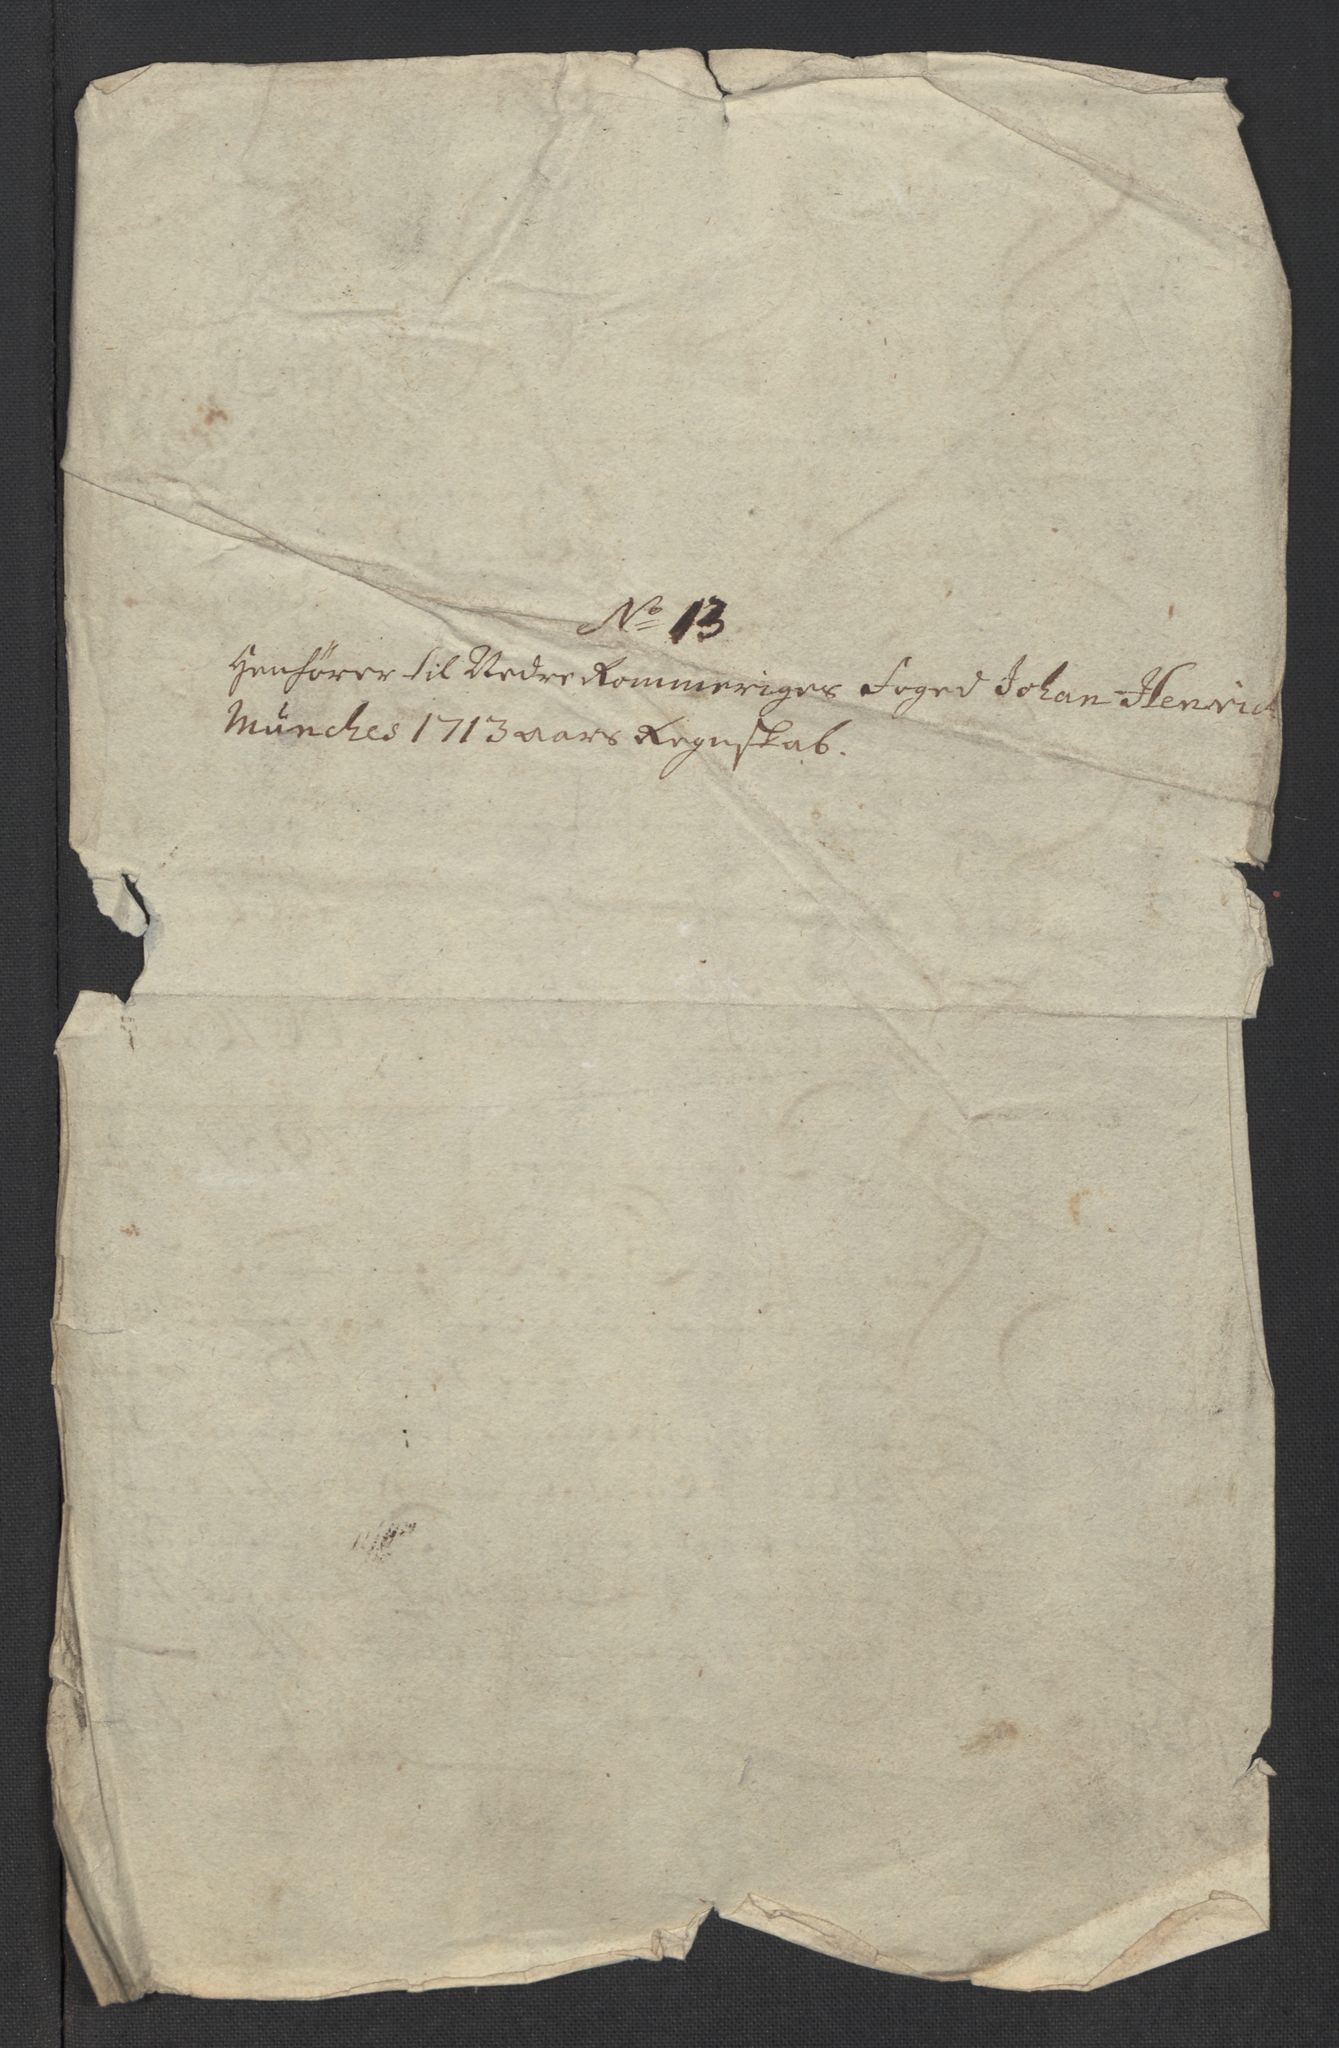 No 13
Henhører til Nedre Rommeriges Foged Johan Henrich
Münches 1713 aars Regnskab.